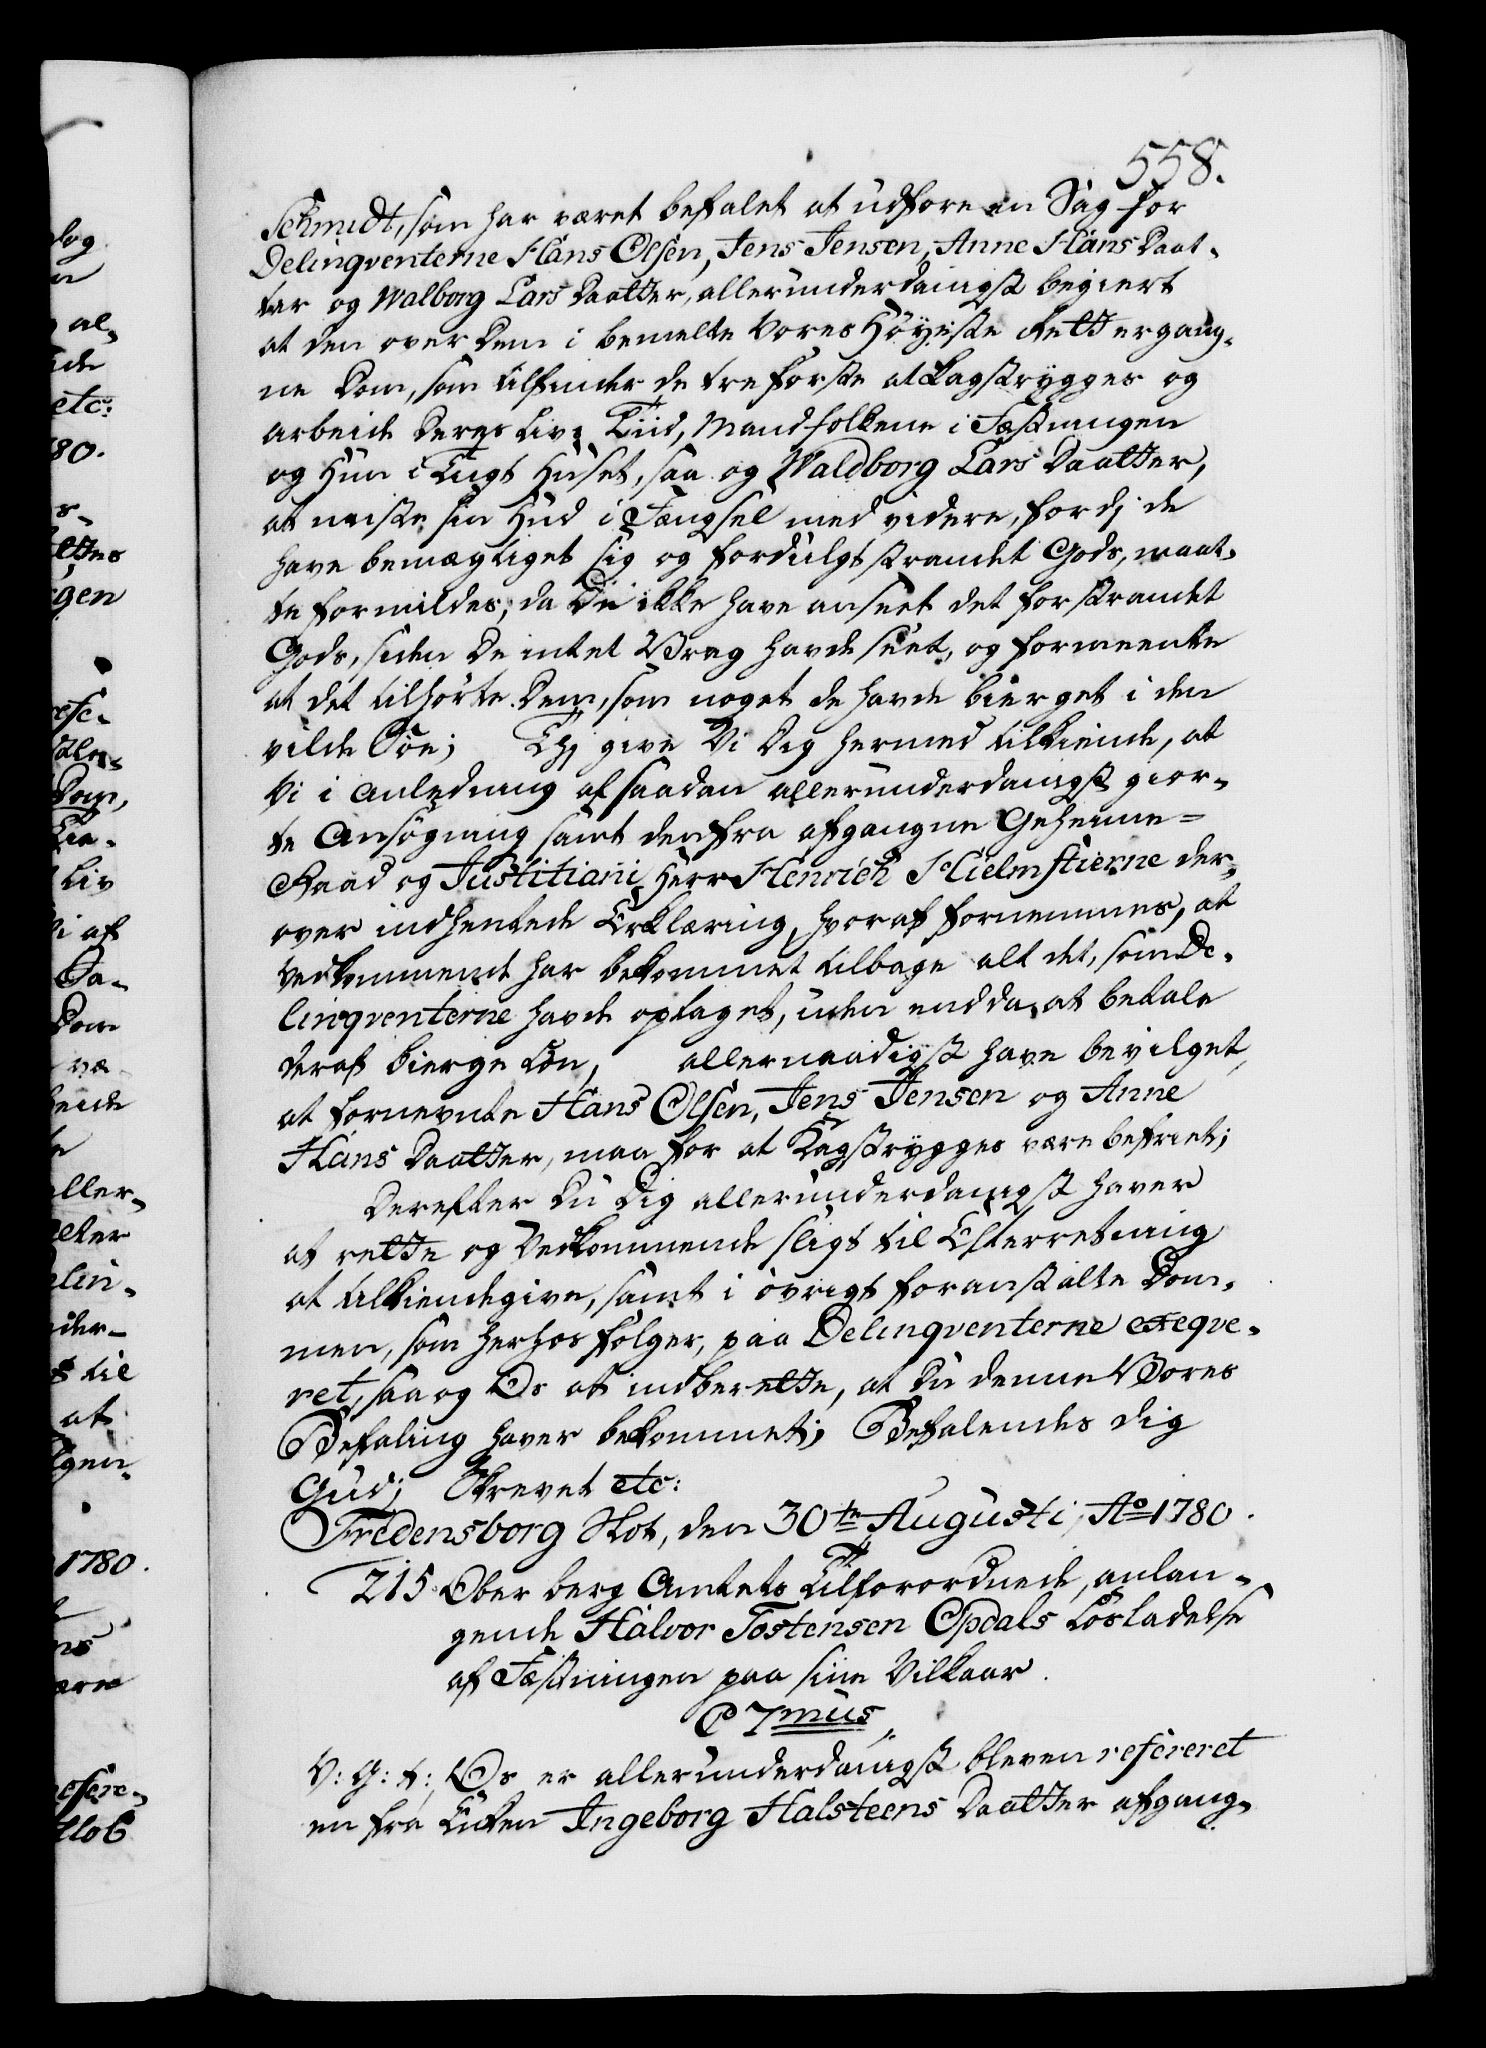 558.
Schmidt, som har været befalet at udføre en Sag for
Delinqventerne Hans Olsen, Jens Jensen, Anne Hans Daat-
ter og Walborg Lars Daatter, allerunderdanigst begiert
at den over dem i bemelte Vores Höyeste Rett ergang-
ne Dom, som tilfinder de tre første at Kagstryges og
arbeide deres Livs Tiid, Mandfolkene i Fæstningen
og Hun i Tugt Huset, saa og Waldborg Lars Daatter,
at miste sin Hud i Fængsel med videre, fordi de
have bemægtiget sig og fordulgt strandet Gods, maat-
te formildes, da De ikke have anseet det for strandet
Gods, siden De intet Vrag havde seet, og formeente
at det tilhörte Dem, som noget de havde bierget i den
vilde Söe; Thi give Vi Dig hermed tilkiende, at
Vi i Anledning af saadan allerunderdanigst gior-
te Ansögning samt den fra afgangne Geheime-
Raad og Justitiarii Herr Henrich Hielmstierne der-
over indhentede Erklæring, hvoraf fornemmes, at
Vedkommende har bekommet tilbage alt det, som De-
linqventerne havde optaget, uden endda at betale
deraf bierge Lön, allernaadigst have bevilget,
at fornevnte Hans Olsen, Jens Jensen og Anne
Hans Daatter, maa for at Kagstryges være befriet;
Derefter Du Dig allerunderdanigst haver
at rette og Vedkommende sligt til Efterretning
at tilkiendegive, samt i övrigt foranstalte Dom-
men, som herhos følger, paa Delinqventerne exeqve-
ret, saa og Os at indberette, at Du denne Vores
Befaling haver bekommet; Befalendes dig
Gud; Skrevet etc:
Fredensborg Slot, den 30te Augusti, Ao 1780.
215 Ober berg Amtets Tilforordnede, anlan-
gende Halvor Tostensen Opdals Lösladelse
af Fæstningen paa siine Vilkaar.
C 7mus,
V: G: t: Os er allerunderdanigst bleven refereret
en fra Liden Ingeborg Halsteens Daatter afgang-